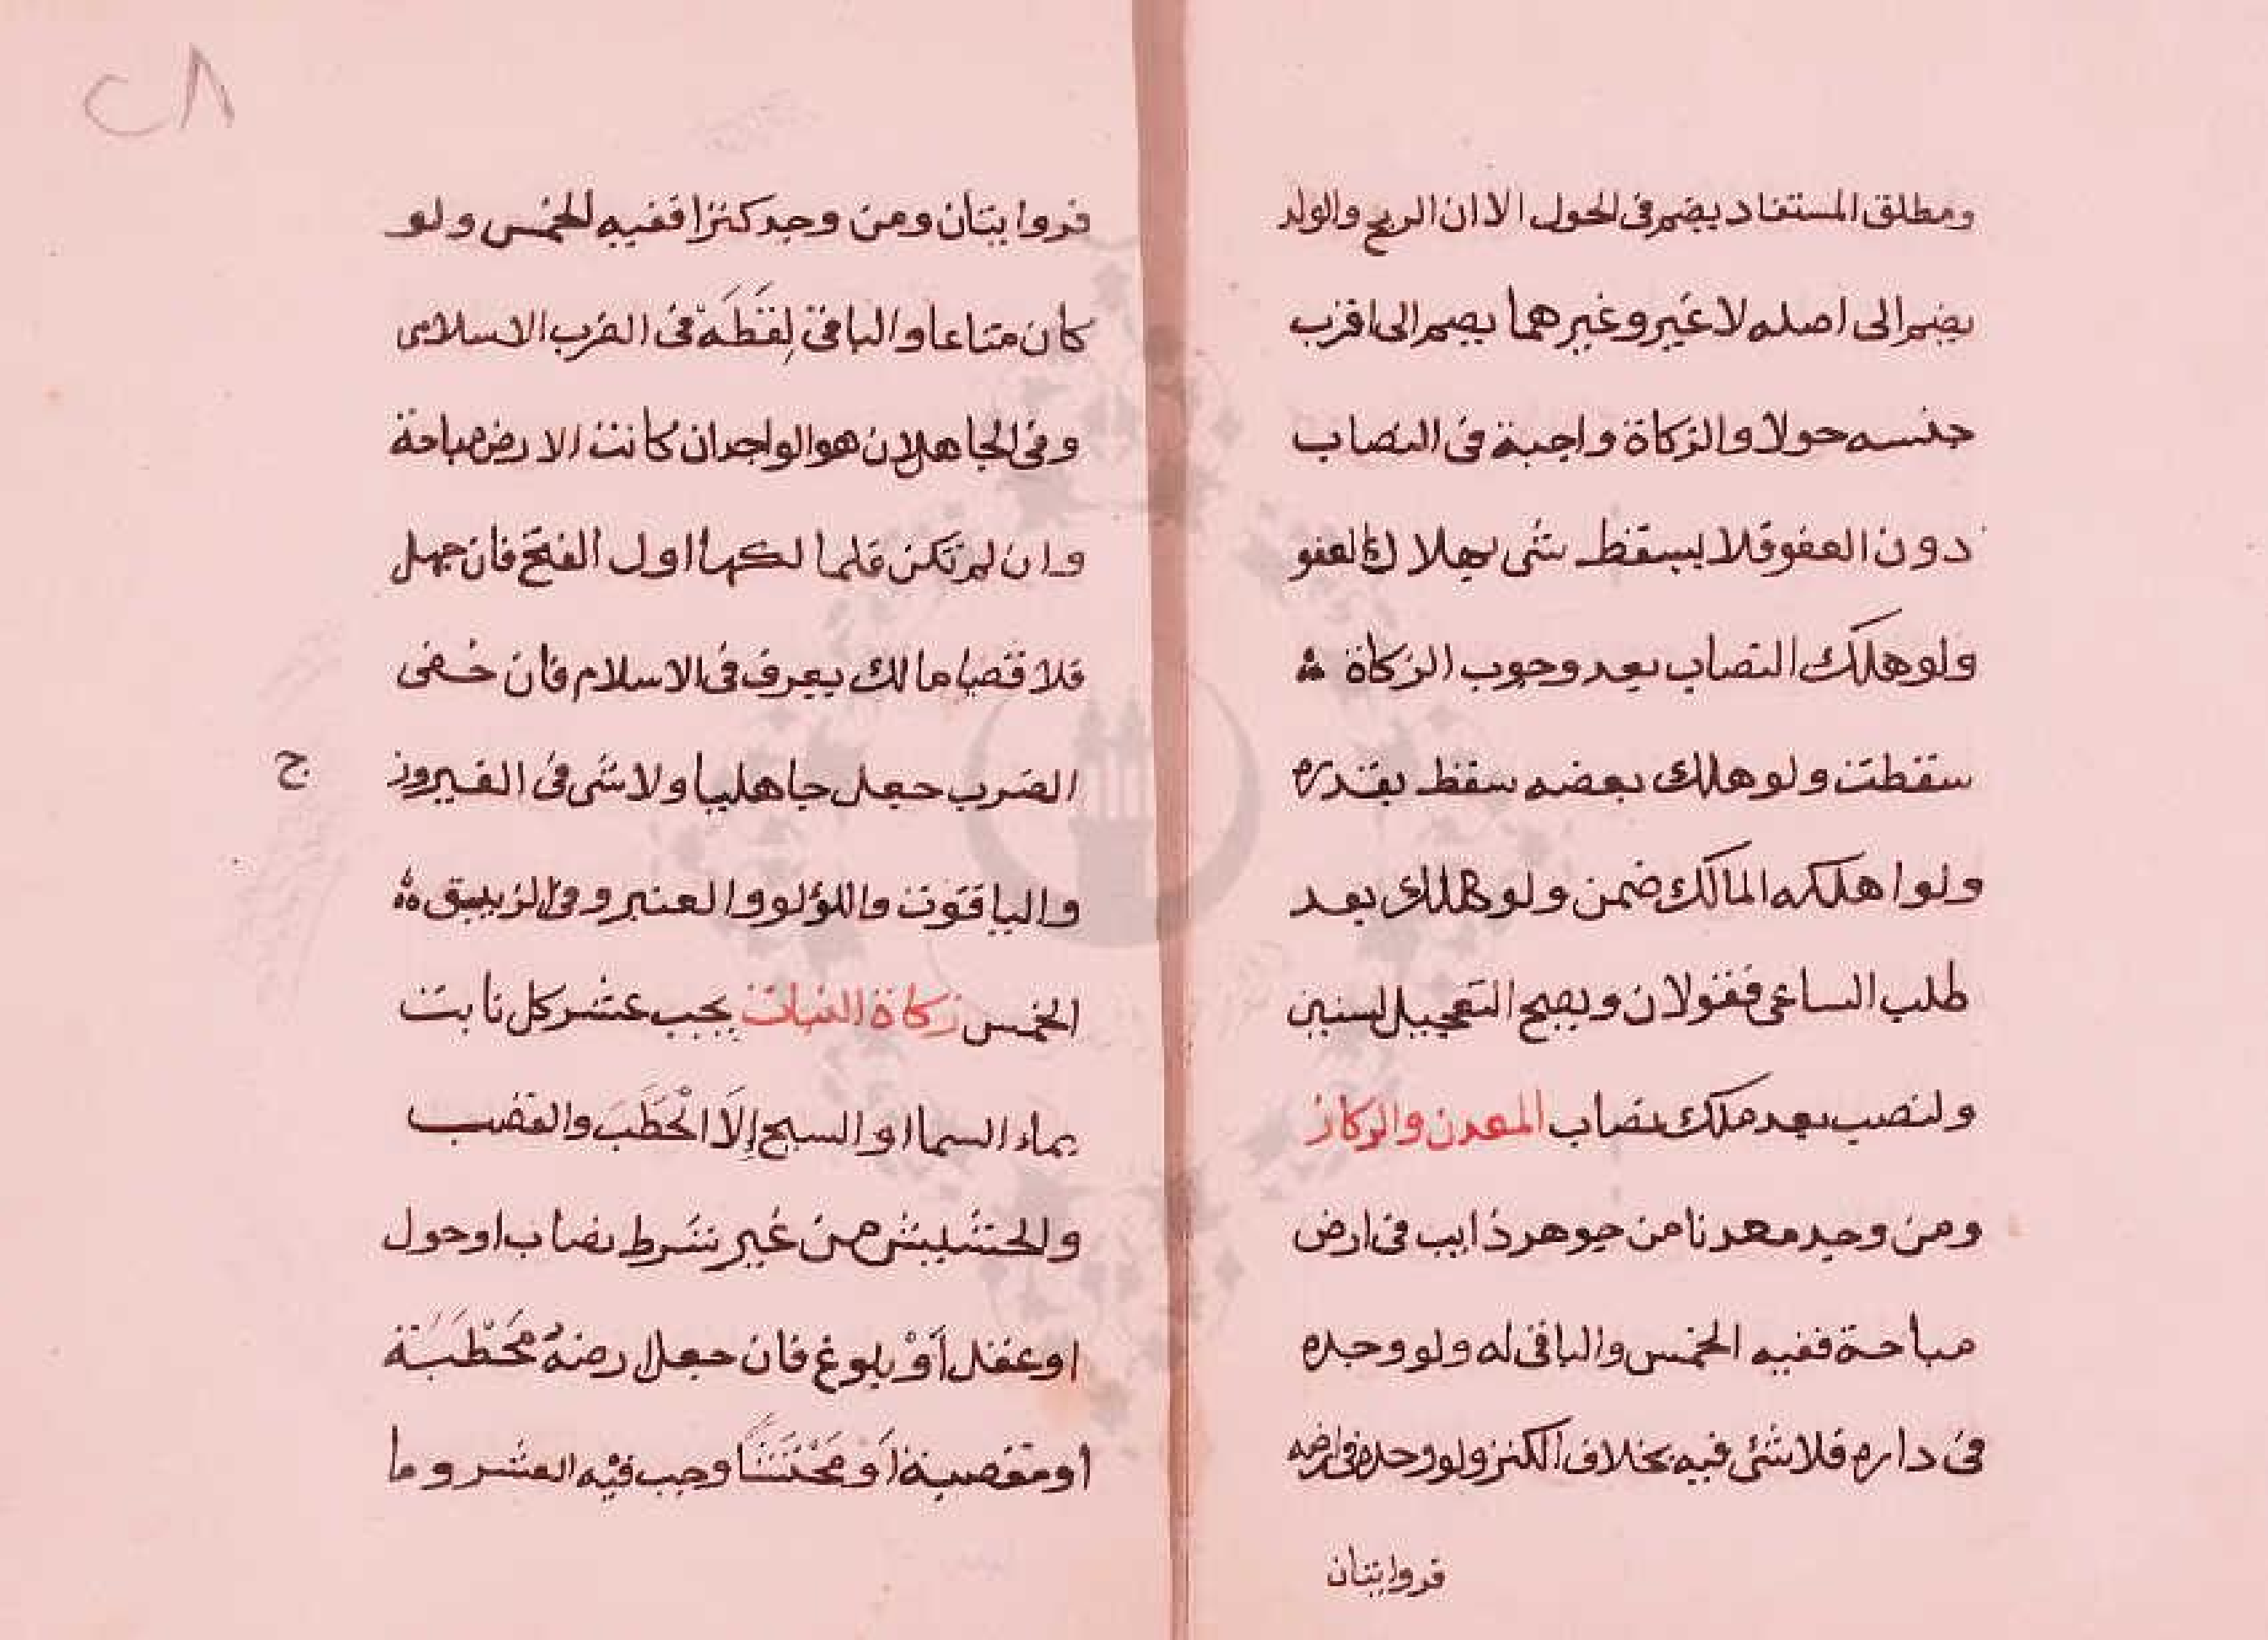 ومطلق المستفاد يضم فى الحول الا ان الربح والولد
يضم الى اصله لا غير وغيرهما يضم الى اقرب
جنسه حولا والزكاة واجبة فى النصاب
دون العفو فلا يسقط شى بهلاك العفو
ولو هلك النصاب بعد وجوب الزكاة
سقطت ولو هلك بعضه سقط بقدره
ولو اهلكه المالك ضمن ولو هلك بعد
طلب الساعى فقولان ويصح التعجيل لسنين
ولنصب بعد ملك نصاب المعدن والركاز
ومن وجد معدنا من جوهر ذايب فى ارض
مباحة ففيه الخمس والباقى له ولو وجده
فى داره فلا شئ فيه بخلاف الكنز ولو وجده فى ارضه
فروايتان
٢٨
فروايتان ومن وجد كنزا ففيه الخمس ولو
كان متاعا والباقى لقطة فى الضرب الاسلامى
وفى الجاهلى هو للواجد ان كانت الارض مباحة
وان لم تكن فلمالكها اول الفتح فان جهل
فلاقصى مالك يعرف فى الاسلام فان خفى
الضرب جعل جاهليا ولا شى فى الفيروز
ج
والياقوت واللؤلو والعنبر وفى الزيبق
الخمس زكاة النبات يجب عشر كل نابت
بماء السما او السيح إلا الحطب والقصب
والحشيش من غير شرط نصاب او حول
او عقل أو بلوغ فان جعل رضه محطبة
او مقصبة أو محتشا وجب فيه العشر وما